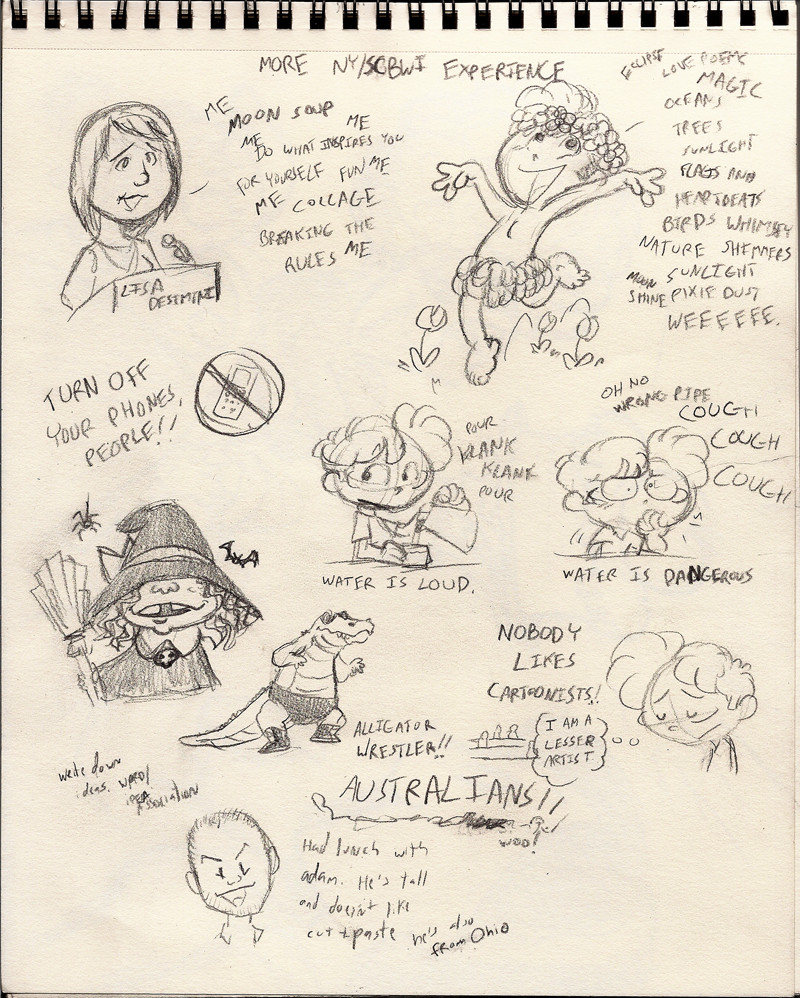 MORE NY/SCBWI EXPERIENCE
ME
MOON SOUP
ME
ME
DO WHAT INSPIRES YOU
FOR YOURSELF FUN ME
ME COLLAGE
BREAKING THE
RULES ME
LISA
DESIMINI
ECLIPSE LOVE POEMS
MAGIC
OCEANS
TREES
SUNLIGHT
FLAGS AND
HEARTBEATS
BIRDS WHIMSEY
NATURE SHIMMERS
MOON SUNLIGHT
SHINE PIXIE DUST
WEEEEEE.
TURN OFF
YOUR PHONES,
PEOPLE!!
POUR
KLANK
KLANK
POUR
WATER IS LOUD.
OH NO
WRONG PIPE
COUGH
COUGH
COUGH
WATER IS DANGEROUS
ALLIGATOR
WRESTLER!!
NOBODY
LIKES
CARTOONISTS!
I AM A
LESSER
ARTIST
write down
ideas. WORD/
IDEA
ASSOCIATION
AUSTRALIANS!!
WOO!
Had lunch with
adam. He's tall
and doesn't like
cut + paste he's also
from Ohio